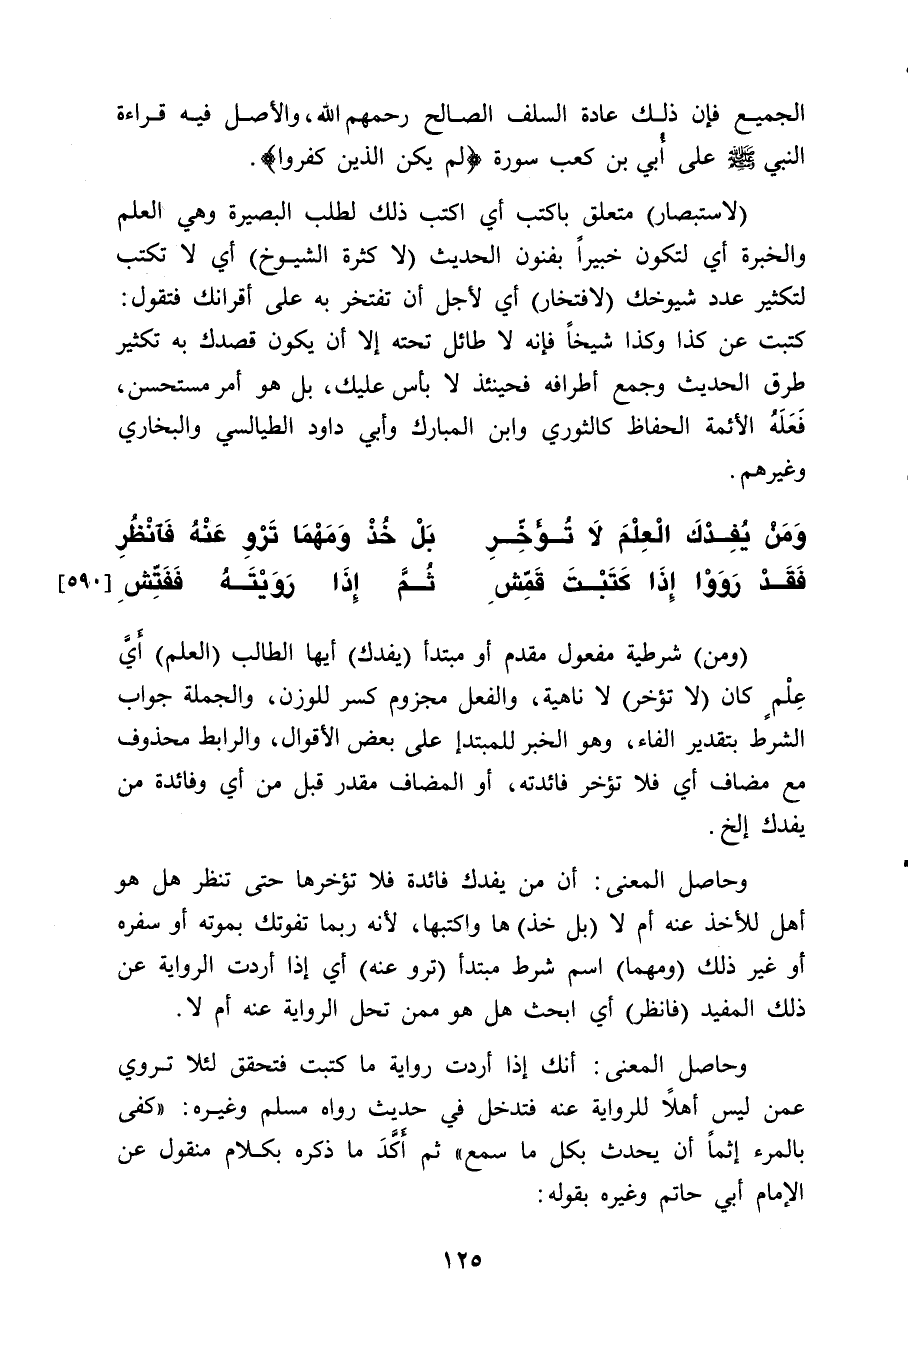 الجميع فإن ذلك عادة السلف الصالح رحمهم الله، والأصل فيه قراءة
النبي ﷺ على أُبي بن كعب سورة ﴿لم يكن الذين كفروا﴾.
(لاستبصار) متعلق باكتب أي اكتب ذلك لطلب البصيرة وهي العلم
والخبرة أي لتكون خبيراً بفنون الحديث (لا كثرة الشيوخ) أي لا تكتب
لتكثير عدد شيوخك (لافتخار) أي لأجل أن تفتخر به على أقرانك فتقول:
كتبت عن كذا وكذا شيخاً فإنه لا طائل تحته إلا أن يكون قصدك به تكثير
طرق الحديث وجمع أطرافه فحينئذ لا بأس عليك، بل هو أمر مستحسن،
فَعَلَهُ الأئمة الحفاظ كالثوري وابن المبارك وأبي داود الطيالسي والبخاري
وغيرهم.
وَمَنْ يُفِدْكَ الْعِلْمَ لَا تُؤَخِّرِ بَلْ خُذْ وَمَهْمَا تَرْوِ عَنْهُ فَآنْظُرِ
فَقَدْ رَوَوْا إِذَا كَتَبْتَ قَمِّشِ ثُمَّ إِذَا رَوَيْتَهُ فَفَتِّشِ [٥٩٠]
(ومن) شرطية مفعول مقدم أو مبتدأ (يفدك) أيها الطالب (العلم) أَيَّ
عِلْمٍ كان (لا تؤخر) لا ناهية، والفعل مجزوم كسر للوزن، والجملة جواب
الشرط بتقدير الفاء، وهو الخبر للمبتدإ على بعض الأقوال، والرابط محذوف
مع مضاف أي فلا تؤخر فائدته، أو المضاف مقدر قبل من أي وفائدة من
يفدك إلخ.
وحاصل المعنى: أن من يفدك فائدة فلا تؤخرها حتى تنظر هل هو
أهل للأخذ عنه أم لا (بل خذ) ها واكتبها، لأنه ربما تفوتك بموته أو سفره
أو غير ذلك (ومهما) اسم شرط مبتدأ (ترو عنه) أي إذا أردت الرواية عن
ذلك المفيد (فانظر) أي ابحث هل هو ممن تحل الرواية عنه أم لا.
وحاصل المعنى: أنك إذا أردت رواية ما كتبت فتحقق لئلا تروي
عمن ليس أهلاً للرواية عنه فتدخل في حديث رواه مسلم وغيره: «كفى
بالمرء إثماً أن يحدث بكل ما سمع» ثم أَكَّدَ ما ذكره بكلام منقول عن
الإمام أبي حاتم وغيره بقوله:
١٢٥